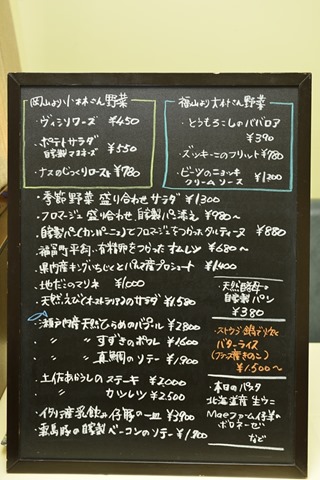 岡山より小林さん野菜
・ヴィシソワーズ ¥450
・ポテトサラダ 自家製マヨネーズ ¥550
・ナスのじっくりロースト ¥780
福山より大林さん野菜
・とうもろこしのババロア
¥390
・ズッキーニのフリット ¥780
・ビーツのニョッキ
クリームソース ¥1300
・季節野菜 盛り合わせ サラダ ¥1300
・フロマージュ 盛り合わせ、自家製パン添え ¥980〜
・自家製パン(カンパーニュ)でフロマージュをつかった タルティーヌ ¥880
有精卵をつかった オムレツ ¥680〜
・県内産キングいちじくとパルマ産プロシュート ¥1400
・地だこのマリネ ¥1000
・天然えび のサラダ ¥1580
・瀬戸内産天然ひらめの ¥2800
・〃 〃 すずきのポワレ ¥1600
・〃 〃 真鯛のソテー ¥1900
・土佐あかうしの ステーキ ¥2000
・〃 カツレツ ¥2500
・イタリア産乳飲み仔豚の一皿 ¥3900
・霧島豚の自家製ベーコンのソテー ¥1800
・天然酵母の
自家製パン
¥380
・ストウブ鍋で炊く
バターライス
¥1500〜
・本日のパスタ
北海道産生ウニ
ボロネーゼ
など